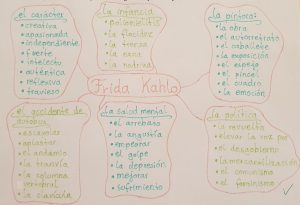 el carácter
• creativa
• apasionada
• independiente
• fuerte
• intelecto
• auténtica
• reflexiva
• travieso
la infancia
• poliomielitis
• la flacidez
• la trenza
• la nana
• la nodriza
la pintora
• la obra
• el autorretrato
• el caballete
• la exposición
• el espejo
• el pincel
• el cuadro
• la emoción
Frida Kahlo
el accidente de
• escayolas
• aplastar
• el andamio
• la tranvía
• la columna
vertebral
• la clavícula
La salud mental
• el arrebato
• la angustia
• empeorar
• el golpe
• la depresión
• mejorar
• sufrimiento
la política
• la revuelta
• elevar la voz por
• el desgobierno
• la mercantilización
• el comunismo
• el feminismo